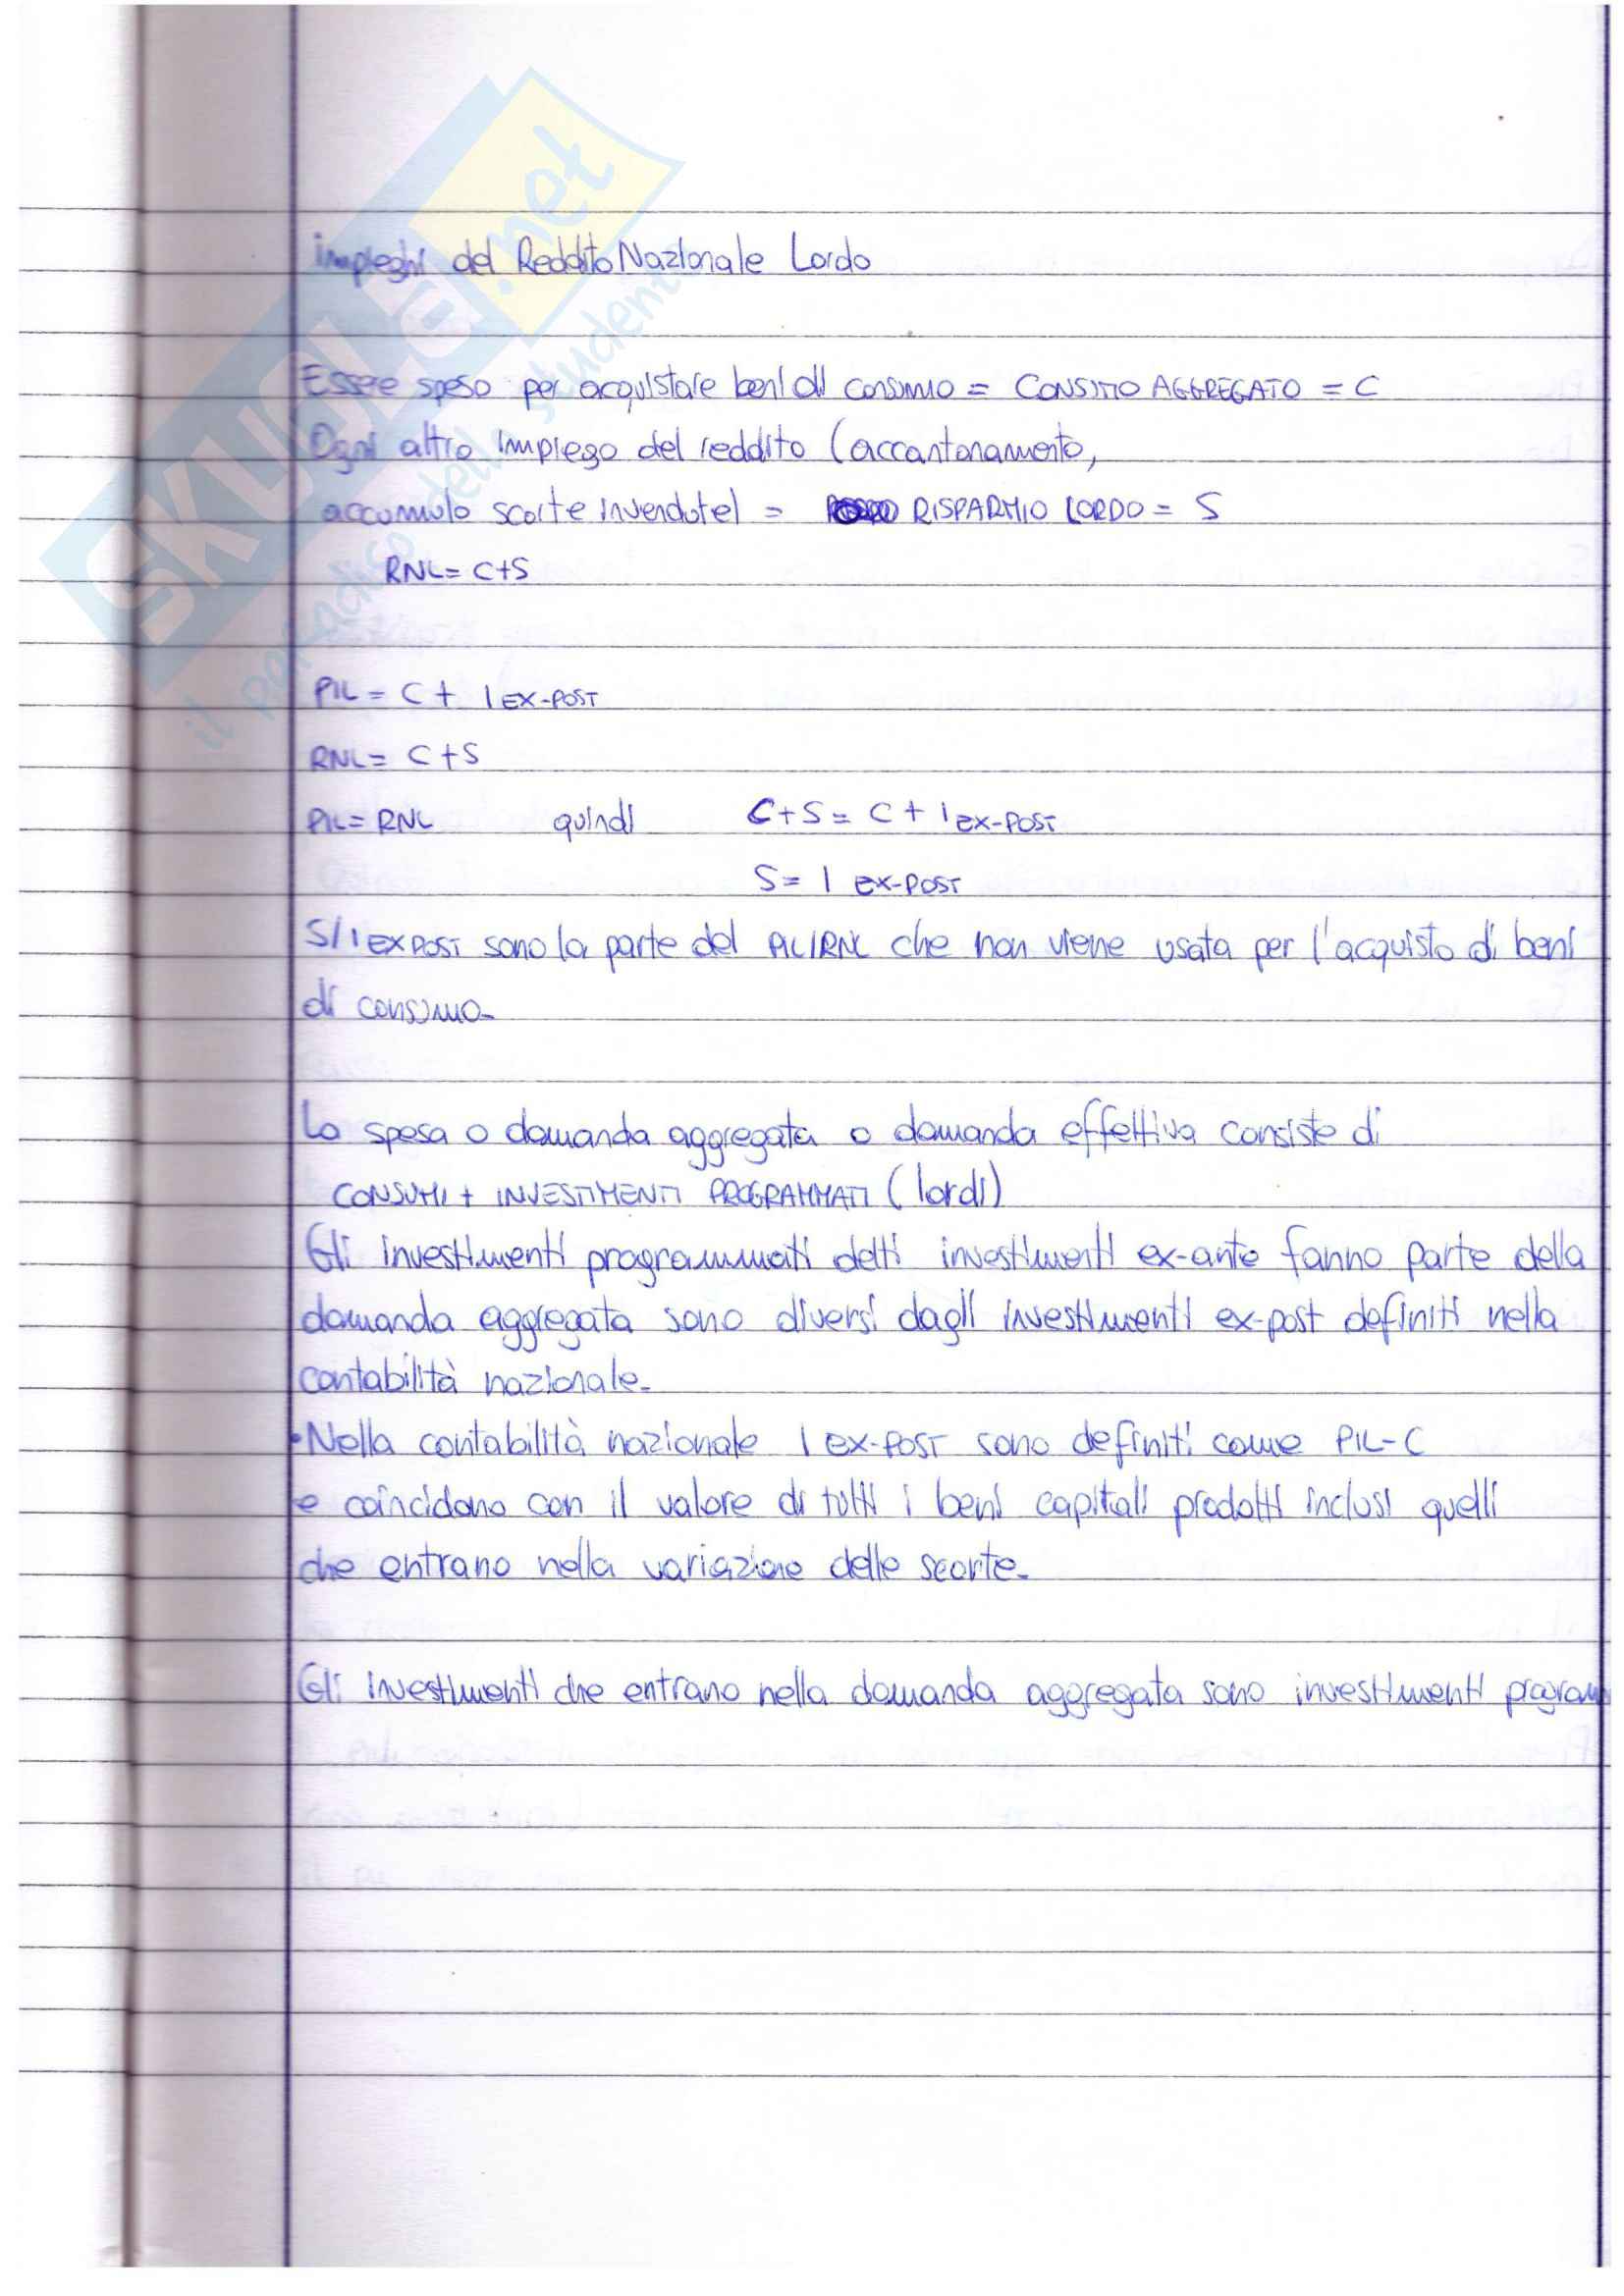 Impieghi del Reddito Nazionale Lordo
Essere speso per acquistare beni di consumo = CONSUMO AGGREGATO = C
Ogni altro impiego del reddito (accantonamento,
accumulo scorte invendute) = RISPARMIO LORDO = S
RNL = C+S
PIL = C + I EX-POST
RNL = C+S
PIL = RNL quindi C+S = C + I EX-POST
S = I EX-POST
S/I EX POST sono la parte del PIL/RNL che non viene usata per l'acquisto di beni
di consumo.
La spesa o domanda aggregata o domanda effettiva consiste di
CONSUMI + INVESTIMENTI PROGRAMMATI (lordi)
Gli investimenti programmati detti investimenti ex-ante fanno parte della
domanda aggregata sono diversi dagli investimenti ex-post definiti nella
contabilità nazionale.
• Nella contabilità nazionale I EX-POST sono definiti come PIL-C
e coincidono con il valore di tutti i beni capitali prodotti inclusi quelli
che entrano nella variazione delle scorte.
Gli investimenti che entrano nella domanda aggregata sono investimenti program
SKUOLA.net
il paradiso dello studente